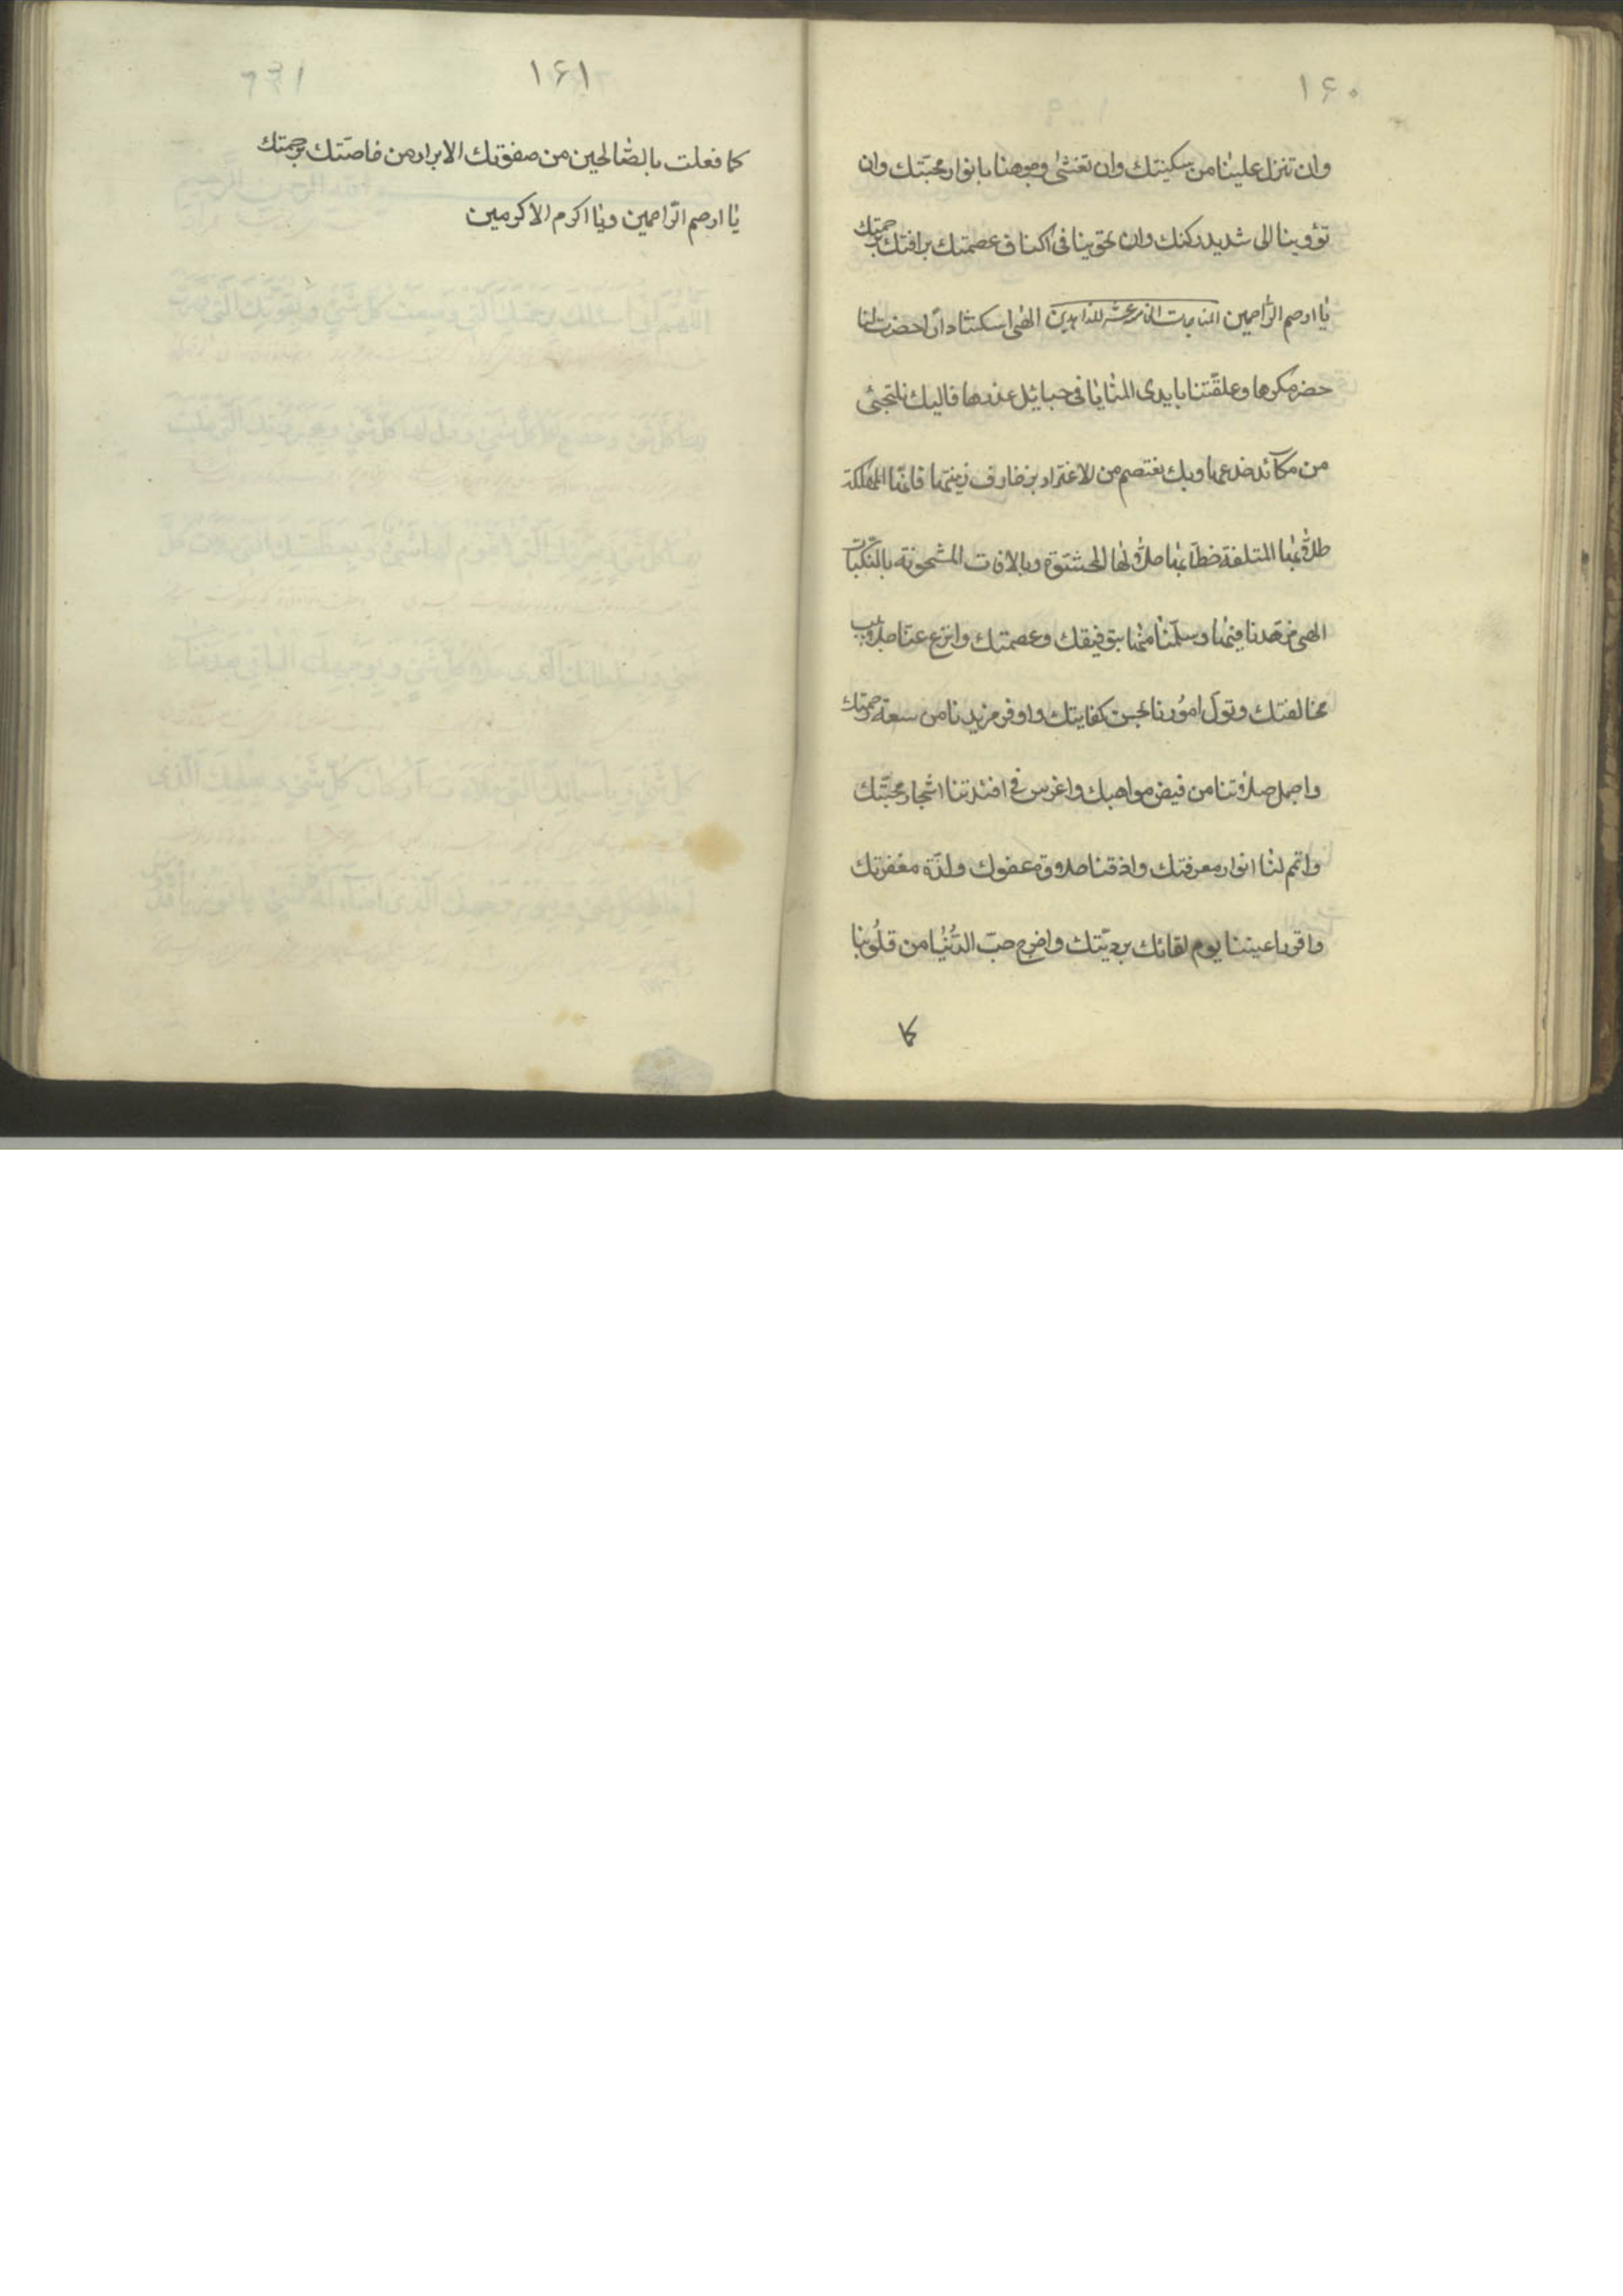 ۱۶۰
وان تنزل علينا من سكينتك وان تغشى وجوهنا بانوار محبتك وان
تؤوينا الى شديد ركنك وان تحوينا فى اكناف عصمتك برافتك برحمتك
يا ارحم الراحمين المناجات الخامس عشر للزاهدين الهى اسكنتنا دارا حضرت لنا
حفر مكرها وعلقتنا بايدى المنايا فى حبائل غدرها فاليك نلتجئ
من مكائد خدعها وبك نعتصم من الاغترار بزخارف زينتها فانها المهلكة
طلابها المتلفة حلالها المحشوة وبالافات المشحونة بالنكبات
الهى فزهدنا فيها وسلمنا منها بتوفيقك وعصمتك وانزع عنا جلابيب
مخالفتك وتول امورنا بحسن كفايتك واوفر مزيدنا من سعة رحمتك
واجمل صلاتنا من فيض مواهبك واغرس فى افئدتنا اشجار محبتك
واتمم لنا انوار معرفتك واذقنا حلاوة عفوك ولذة مغفرتك
واقرر اعيننا يوم لقائك برؤيتك واخرج حب الدنيا من قلوبنا
كا
۱۶۱
كما فعلت بالصالحين من صفوتك الابرار من خاصتك برحمتك
يا ارحم الراحمين ويا اكرم الاكرمين